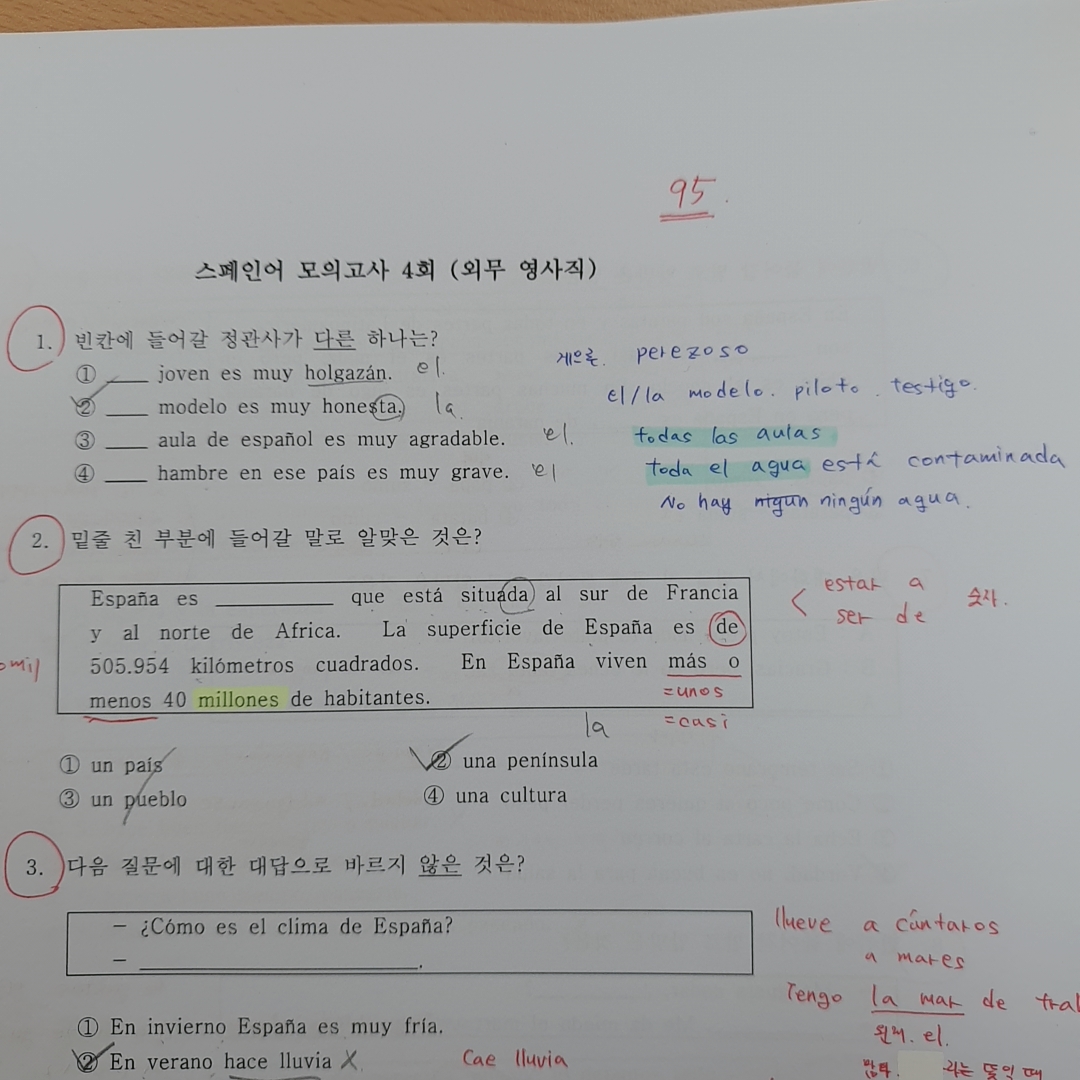 95.
스페인어 모의고사 4회 (외무 영사직)
1. 빈칸에 들어갈 정관사가 다른 하나는?
① ____ joven es muy holgazán. el.
게으른. perezoso
② ____ modelo es muy honesta. la.
el/la modelo. piloto. testigo.
③ ____ aula de español es muy agradable. el.
todas las aulas
④ ____ hambre en ese país es muy grave. el
toda el agua está contaminada
No hay nigun ningún agua.
2. 밑줄 친 부분에 들어갈 말로 알맞은 것은?
España es __________ que está situada al sur de Francia
estar a
y al norte de Africa. La superficie de España es de
ser de 숫자.
505.954 kilómetros cuadrados. En España viven más o
menos 40 millones de habitantes.
=unos
=casi
la
① un país ② una península
③ un pueblo ④ una cultura
3. 다음 질문에 대한 대답으로 바르지 않은 것은?
– ¿Cómo es el clima de España?
– ________________________.
llueve a cántaros
a mares
Tengo la mar de
원래. el.
① En invierno España es muy fría.
② En verano hace lluvia X
Cae lluvia
라는 뜻일 때